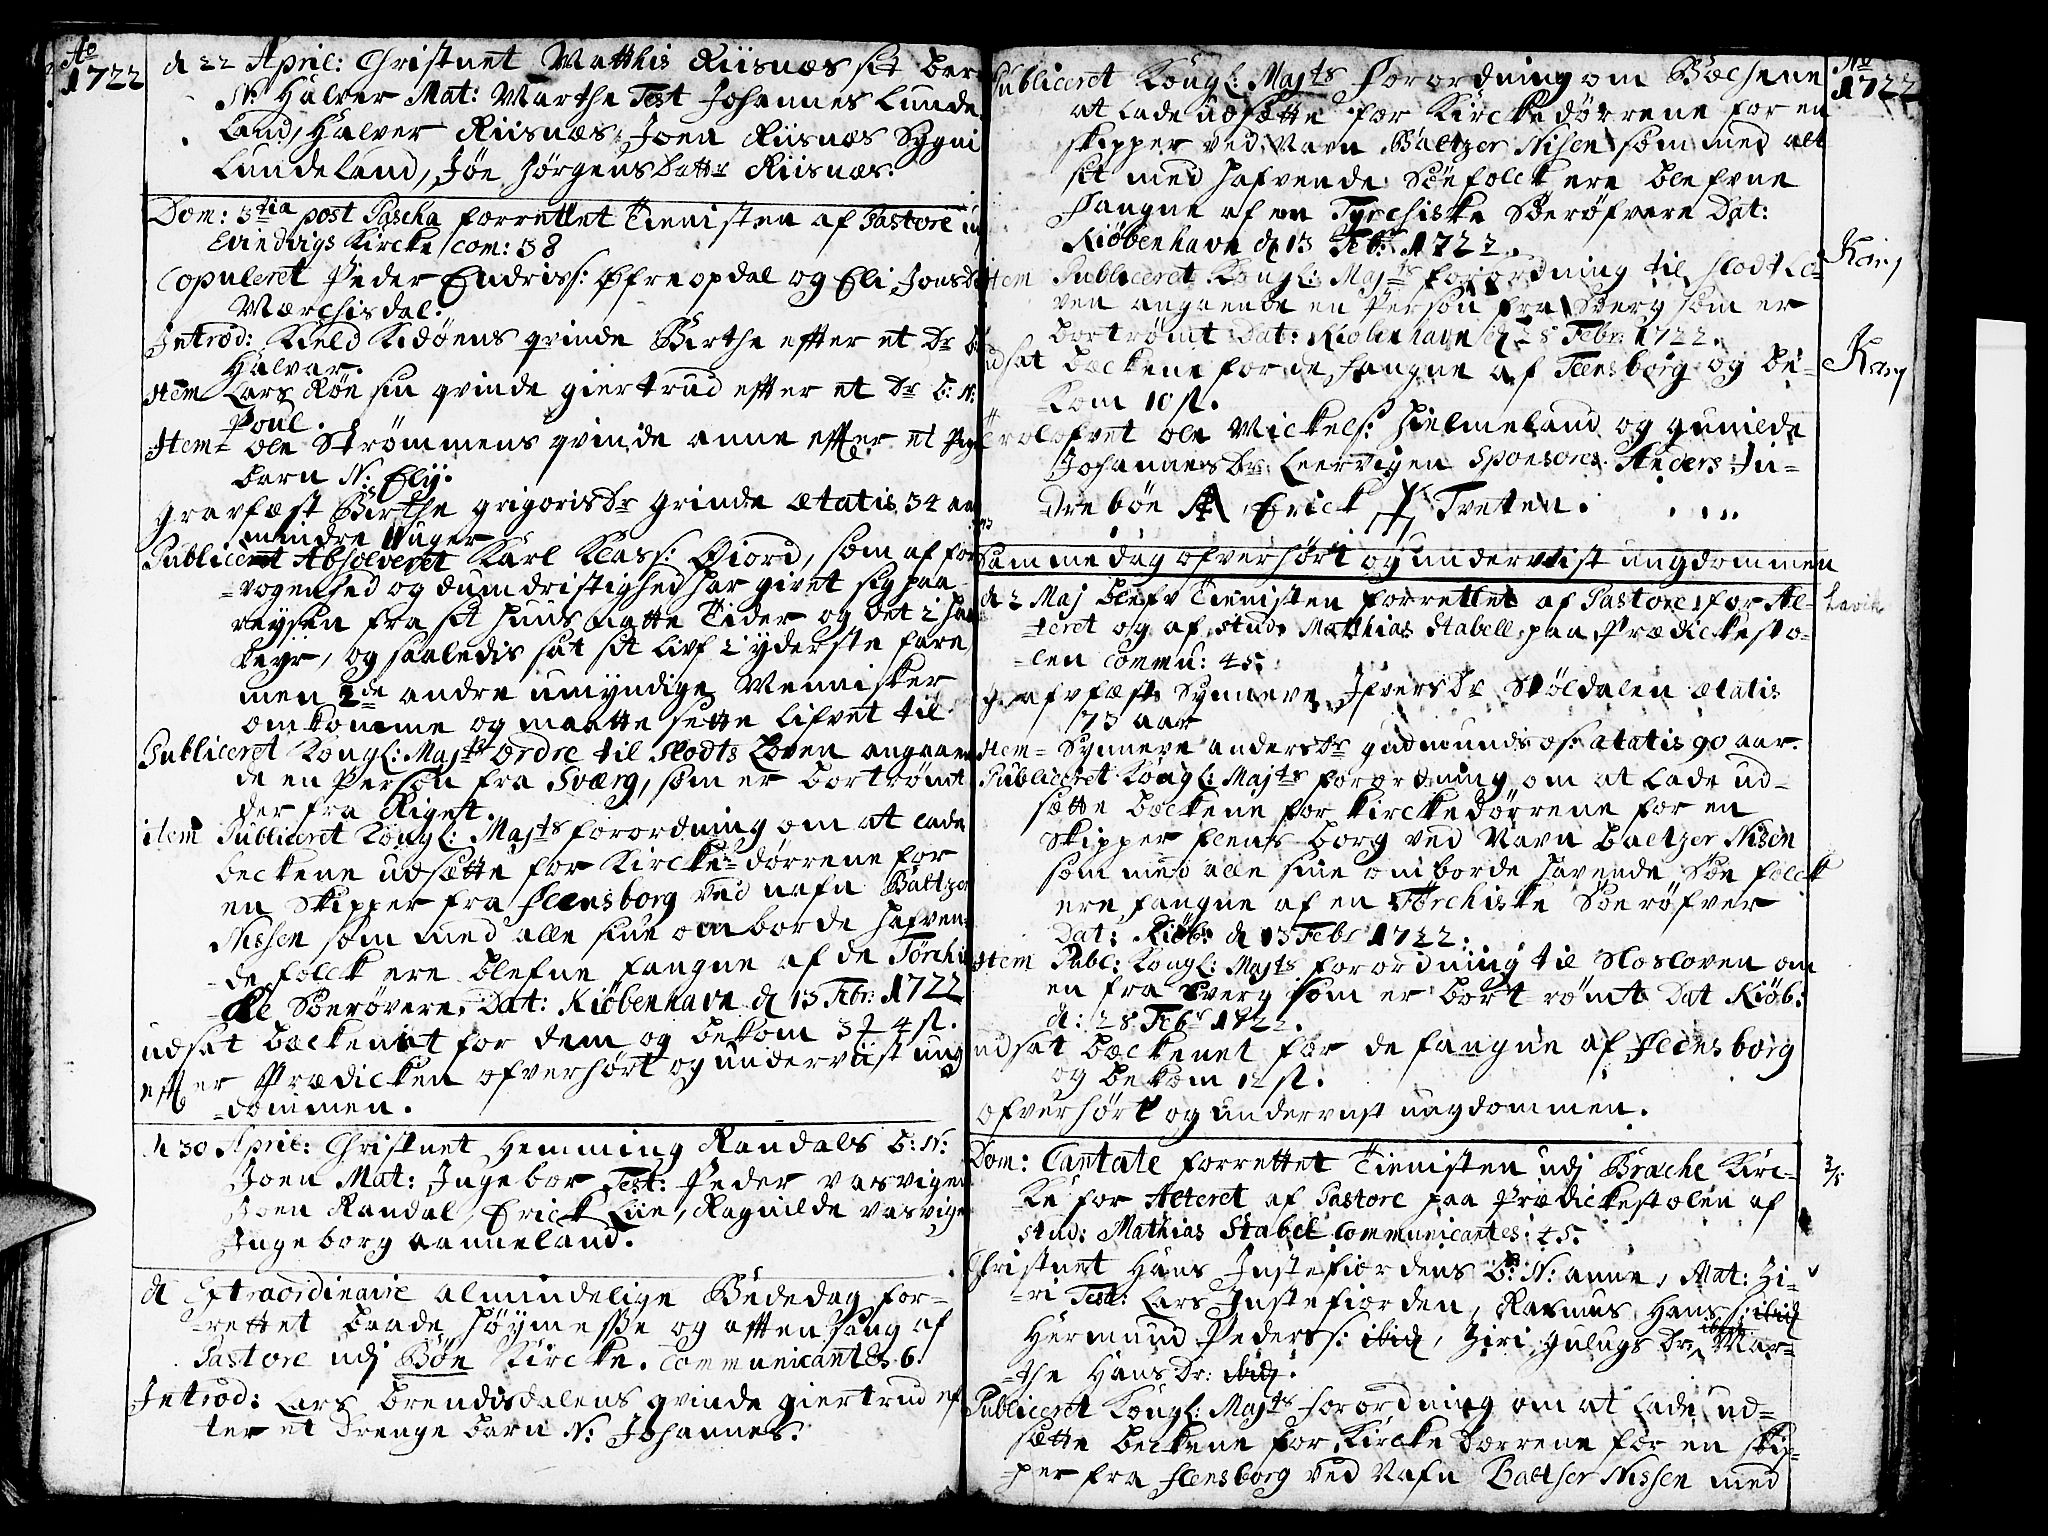 Ao
1722
d 22 April: Christnet Matthis Riisnæs sit bar
N: Halver Mat: Marthe Test Johannes Lunde
land, Halver Riisnæs, Joen Riisnæs Sygni
Lundeland, Jøe Jørgens Datter Riisnæs.
Dom: 3tia post Pascha forrettet Tienisten af Pastore
Evindvigs Kircke com: 38
Copuleret Peder Endriss: Øfreopdal og Eli Jons
Marchisdal.
Introd: Kield Kidøens qvinde Birthe effter et Dr
Halvar.
Item Lars Røe sin qvinde giertrud effter et Dr b: N:
Poul.
Item Ole Strømmens qvinde anne effter et
barn N: Ely.
Gravfæst Birthe grigoris Dr grinde ætatis 34 aar
mindre 11 uger
Publicent Absolveret Karl Klass: Qiord, som af for
vogenhed og dumdristighed har givet sig paa
reysen fra sit Huus natte Tider og det i
, og saaledis sat sit lif i yderste fare
men 2de andre umyndige Mennisker
omkomme og maatte sette lifvet til
Publiceret Kongl: Majts ordre til Slodts Loven angaaen
de en Person fra Sværg, som er bortrømt
der fra Riget.
item Publiceret Kongl: Majts forordning om at lade
beckene udsætte for Kircke-dørrene for
en Skipper fra Flensborg ved nafn Baltzer
Nissen som med alle sine omborde hafven
de folck ere blefne fangne af de Törchi
ske Söerövere. Dat: Kiøbenhavn d 13 Febr: 1722
udsat beckenet for dem og bekom 3 4 st.
effter Prædicken ofverhørt og underviist ung
dommen.
d 30 April: Christnet Hemming Randals b: N:
Joen Mat: Ingebor Test: Peder vasvigen
Joen Randal, Erick Lie, Ragnilde vasvige
Ingeborg aanneland.
d Extraordinaire almindelige Bededag for-
rettet baade Høymesse og afften sang af
Pastore udj Bøe Kircke. Communicantes 6
Introd: Lars brendisdalens qvinde giertrud ef
ter et drenge barn N: Johannes.
Publiceret Kongl: Majts Forordning om Becsene
at lade udsætte for Kircke dørrene for en
skipper ved Navn Baltzer Nisen som med alt
sit med hafvende Söefolck ere blefvne
Fangne af en Tyrchiske Söeröfvere Dat:
Kiøbenhavn d 13 Febr 1722.
Item Publiceret Kongl: Majts forordning til Slodt Lo-
ven angaaende en Person fra Sverg som er
bortrømt Dat: Kiøbenhavn d 28 Febr: 1722.
udsat beckene for de fangne af Flensborg og be-
kom 10 st.
Trolofvet Ole Mickels: Hielmeland og gunilde
Johannes Dr: Leervigen Sponsores Anders In-
drebøe Erick Tvetten.
Samme dag ofverhørt og underviist ungdommen
d 2 Maj blefv Tienisten forrettet af Pastore for Al-
teret og af stud. Matthias Stabell paa Prædickesto-
len Commu: 45.
Grafvfæst Synneve Ifvers Dr Støldalen ætatis
73 aar
Item Synneve anders Dr gudmundsøs: ætatis 90 aar.
Publiceret Kongl: Majts forordning om at lade ud-
sætte beckene for kirckedørrene for en
Skipper flensborg ved Navn Baltzer Nisen
som med alle sine omborde havende Söe folck
ere fangne af en Törchiske Söerøfver
Dat: Kiøb: d 13 Febr 1722.
Item Publ: Kongl: Majts forordning til Slosloven om
en fra Sverg som er bort rømt Dat Kiøb:
d: 28 Febr 1722.
udsat beckenet for de fangne af Flensborg
og bekom 12 st.
ofverhørt og underviist ungdommen.
Dom: Cantate forrettet Tienisten udj Brache Kirc-
ke for Alteret af Pastore paa Prædickestolen af
stud: Mathias Stabel Communicantes: 45.
Christnet Hans Instefiordens b: N: anne, Mat: Zi-
ri Test: Lars Instefiorden, Rasmus Hans s: ibid
Hermund Peders s: ibid, Ziri Gulugs Dr: ibid, Mar-
the Hans Dr: ibid.
Publiceret Kongl: Majts forordning om at lade ud-
sætte beckene for Kircke dørrene for en skip-
per fra flensborg ved Nafn Baltser Nissen med
Ao
1722